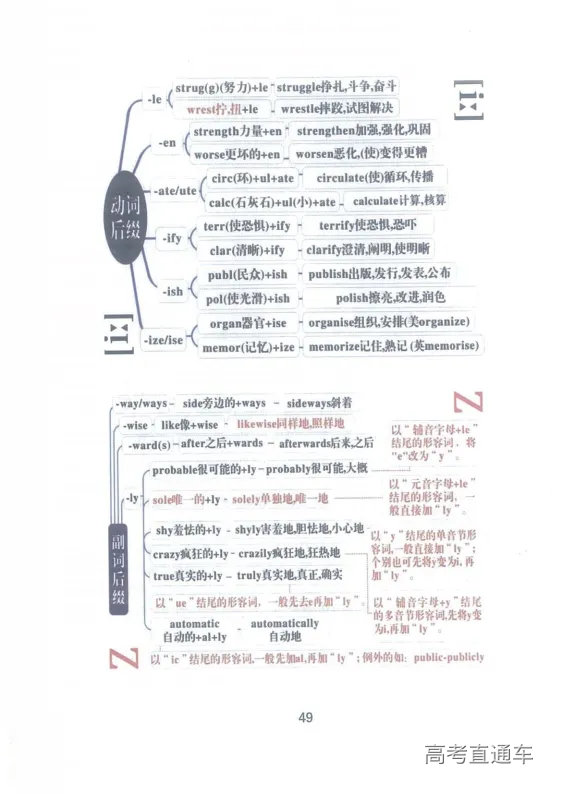 [i:]
动词后缀
-le
strug(g)(努力)+le
struggle挣扎,斗争,奋斗
wrest拧,扭+le
wrestle摔跤,试图解决
-en
strength力量+en
strengthen加强,强化,巩固
worse更坏的+en
worsen恶化,(使)变得更糟
-ate/ute
circ(环)+ul+ate
circulate(使)循环,传播
calc(石灰石)+ul(小)+ate
calculate计算,核算
-ify
terr(使恐惧)+ify
terrify使恐惧,恐吓
clar(清晰)+ify
clarify澄清,阐明,使明晰
-ish
publ(民众)+ish
publish出版,发行,发表,公布
pol(使光滑)+ish
polish擦亮,改进,润色
-ize/ise
organ器官+ise
organise组织,安排(美organize)
memor(记忆)+ize
memorize记住,熟记 (英memorise)
[i:]
Z
副词后缀
-way/ways
side旁边的+ways
sideways斜着
-wise
like像+wise
likewise同样地,照样地
-ward(s)
after之后+wards
afterwards后来,之后
-ly
probable很可能的+ly
probably很可能,大概
以“辅音字母+le”
结尾的形容词，将
"e"改为“y”。
sole唯一的+ly
solely单独地,唯一地
以“元音字母+le”
结尾的形容词，一
般直接加“ly”。
shy羞怯的+ly
shyly害羞地,胆怯地,小心地
以“y”结尾的单音节形
容词,一般直接加“ly”；
个别也可先将y变为i,再
加“ly”。
crazy疯狂的+ly
crazily疯狂地,狂热地
以“辅音字母+y”结尾
的多音节形容词,先将y变
为i,再加“ly”。
true真实的+ly
truly真实地,真正,确实
以“ue”结尾的形容词，一般先去e再加“ly”。
automatic
自动的+al+ly
automatically
自动地
以“ic”结尾的形容词,一般先加al,再加“ly”；例外的如：public-publicly
Z
49
高考直通车